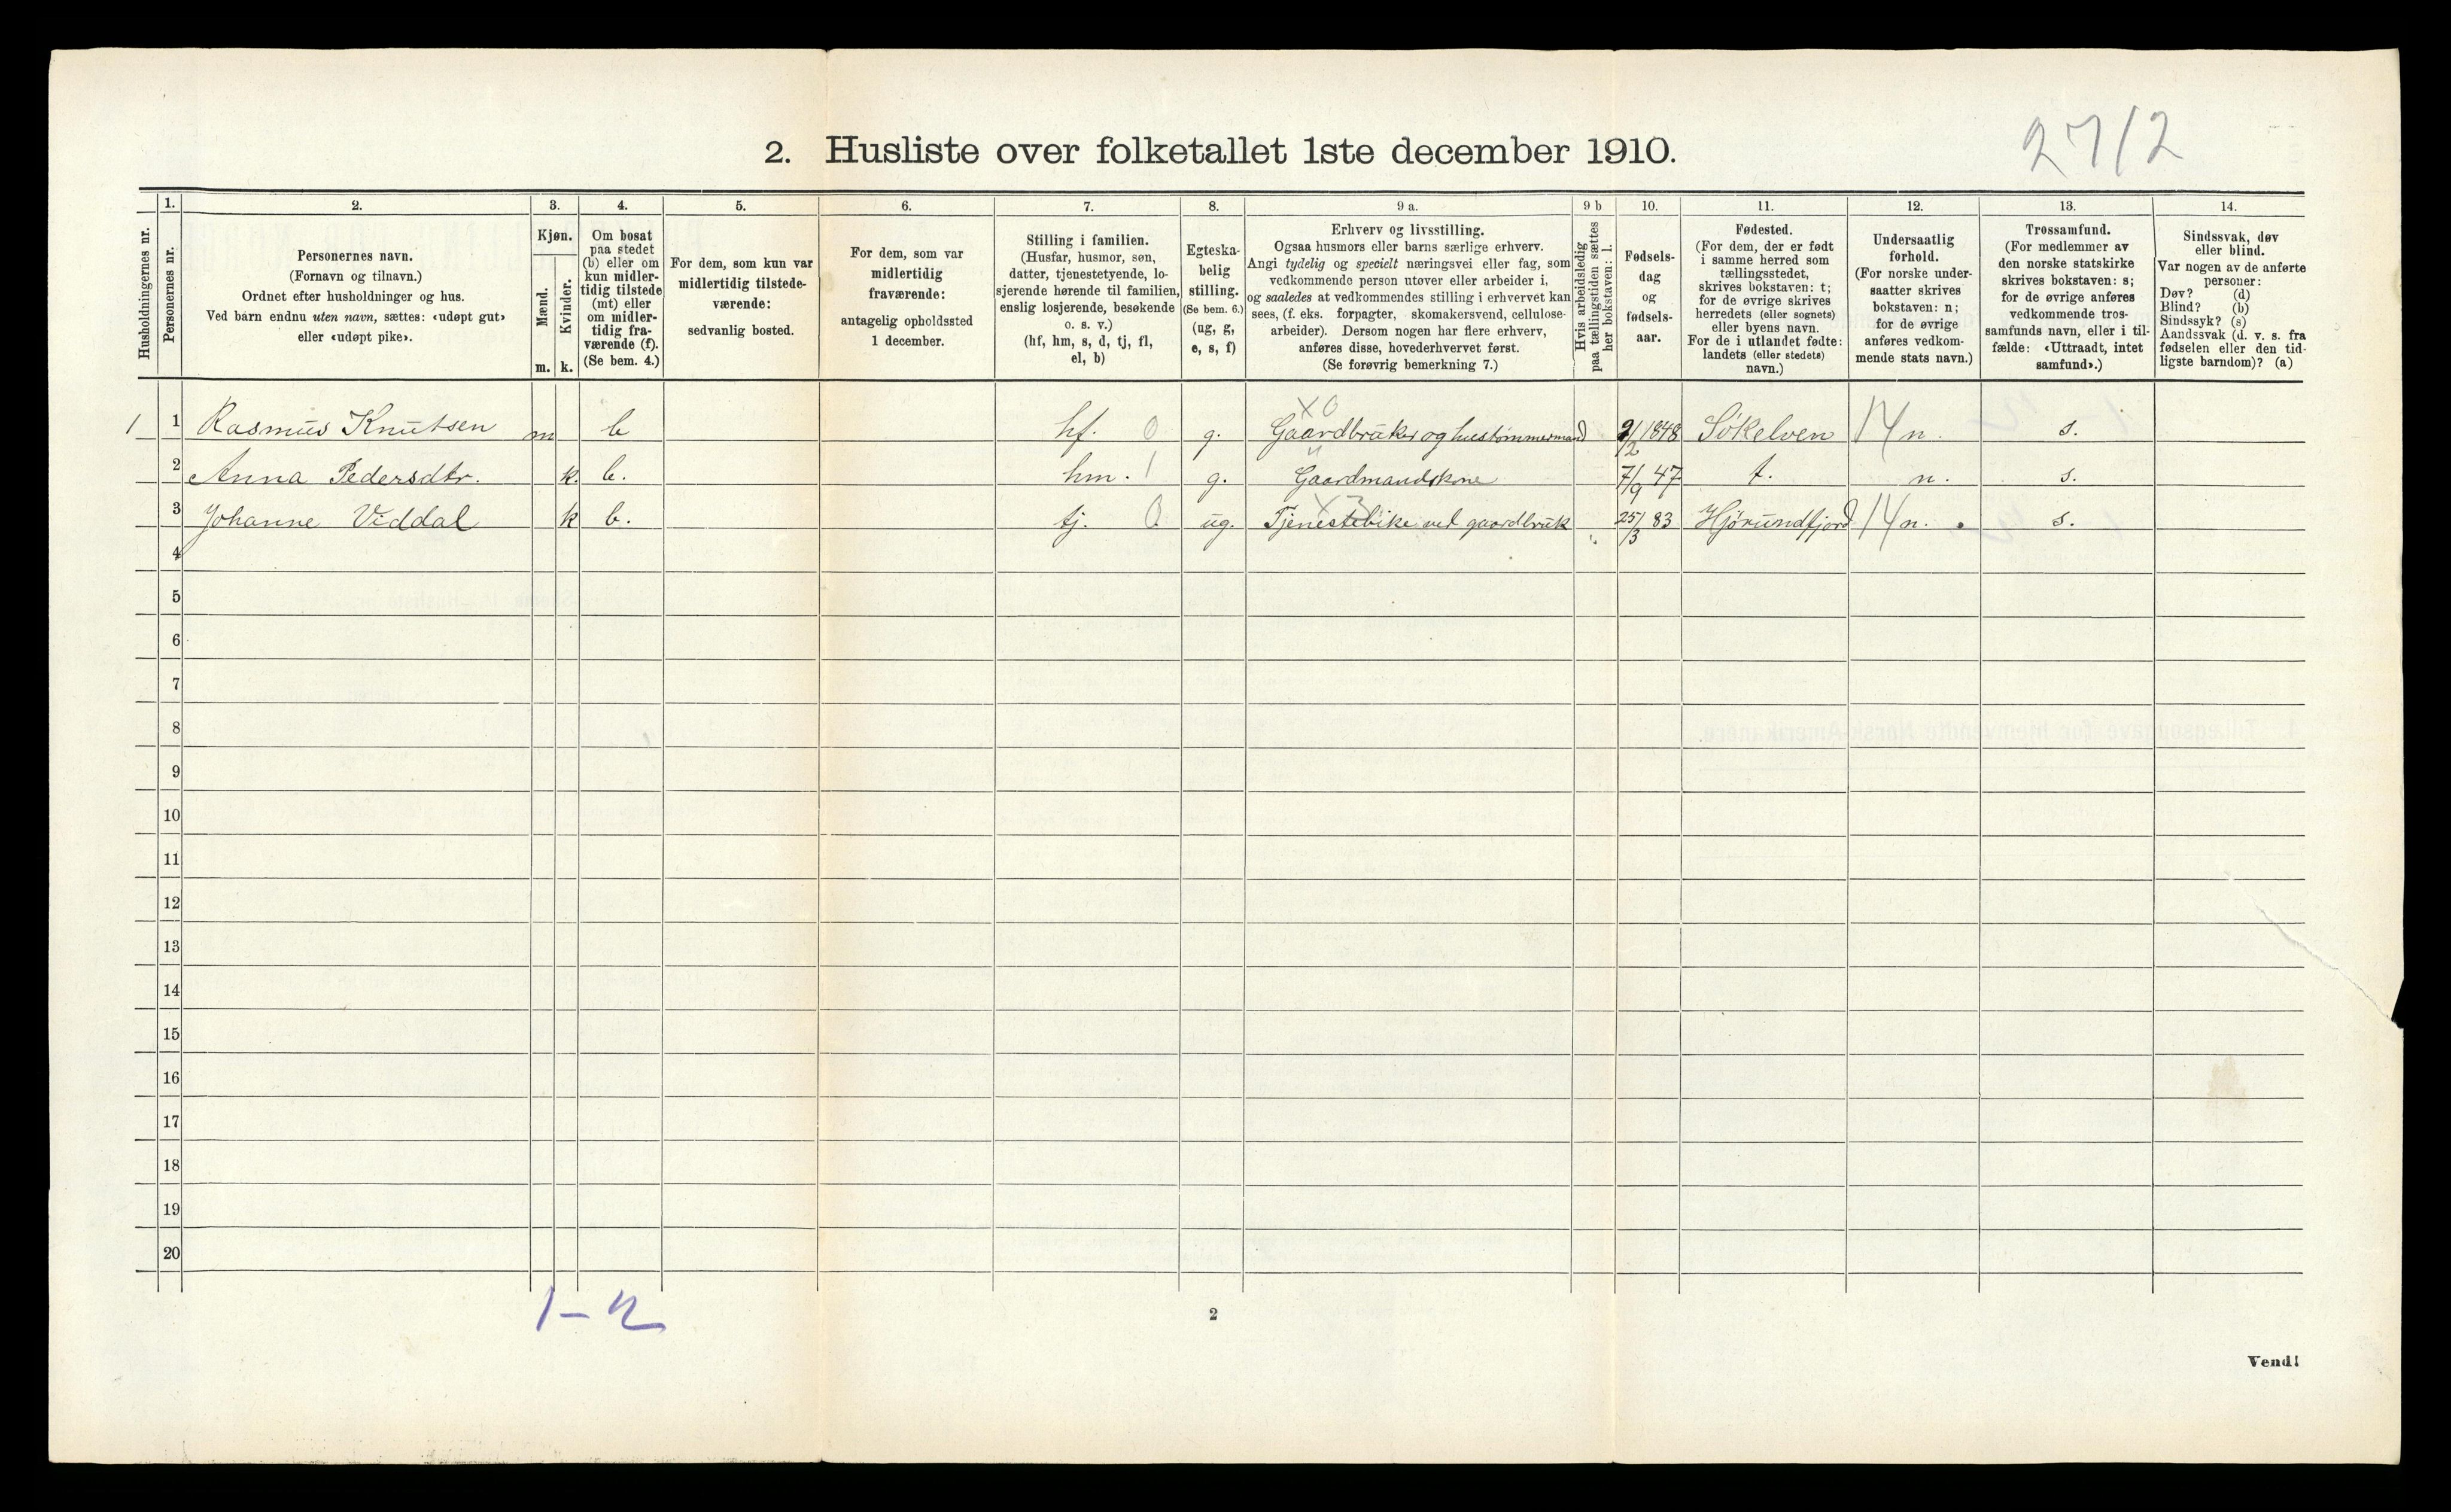 2712
2. Husliste over folketallet 1ste december 1910.
Husholdningernes nr.
1.
Personernes nr.
2.
Personernes navn.
(Fornavn og tilnavn.)
Ordnet efter husholdninger og hus.
Ved barn endnu uten navn, sættes: «udøpt gut»
eller «udøpt pike».
3.
Kjøn.
Mænd.
Kvinder.
m. k.
4.
Om bosat
paa stedet
(b) eller om
kun midler-
tidig tilstede
(mt) eller
om midler-
tidig fra-
værende (f).
(Se bem. 4.)
5.
For dem, som kun var
midlertidig tilstede-
værende:
sedvanlig bosted.
6.
For dem, som var
midlertidig
fraværende:
antagelig opholdssted
1 december.
7.
Stilling i familien.
(Husfar, husmor, søn,
datter, tjenestetyende, lo-
sjerende hørende til familien,
enslig losjerende, besøkende
o. s. v.)
(hf, hm, s, d, tj, fl,
el, b)
8.
Egteska-
belig
stilling.
(Se bem. 6.)
(ug, g,
e, s, f)
9 a.
Erhverv og livsstilling.
Ogsaa husmors eller barns særlige erhverv.
Angi tydelig og specielt næringsvei eller fag, som
vedkommende person utøver eller arbeider i,
og saaledes at vedkommendes stilling i erhvervet kan
sees, (f. eks. forpagter, skomakersvend, cellulose-
arbeider). Dersom nogen har flere erhverv,
anføres disse, hovederhvervet først.
(Se forøvrig bemerkning 7.)
9 b
Hvis arbeidsledig
paa tællingstiden sættes
her bokstaven: l.
10.
Fødsels-
dag
og
fødsels-
aar.
11.
Fødested.
(For dem, der er født
i samme herred som
tællingsstedet,
skrives bokstaven: t;
for de øvrige skrives
herredets (eller sognets)
eller byens navn.
For de i utlandet fødte:
landets (eller stedets)
navn.)
12.
Undersaatlig
forhold.
(For norske under-
saatter skrives
bokstaven: n;
for de øvrige
anføres vedkom-
mende stats navn.)
13.
Trossamfund.
(For medlemmer av
den norske statskirke
skrives bokstaven: s;
for de øvrige anføres
vedkommende tros-
samfunds navn, eller i til-
fælde: «Uttraadt, intet
samfund».)
14.
Sindssvak, døv
eller blind.
Var nogen av de anførte
personer:
Døv? (d)
Blind? (b)
Sindssyk? (s)
Aandssvak (d. v. s. fra
fødselen eller den tid-
ligste barndom)? (a)
X 0
1 1 Rasmus Knutsen m b hf. 0 g. Gaardbruker og hustømmermand 9/2 1848 Søkelven 14 n. s.
2 Anna Pedersdtr. k. b. hm. 1 g. Gaardmandskone 7/9 47 t. n. s.
X 3
3 Johanne Viddal k b. tj. 0 ug. Tjenestepike ved gaardbruk 25/3 83 Hjørundfjord 14 n. s.
4
5
6
7
8
9
10
11
12
13
14
15
16
17
18
19
20
1 - 2
2
Vend!